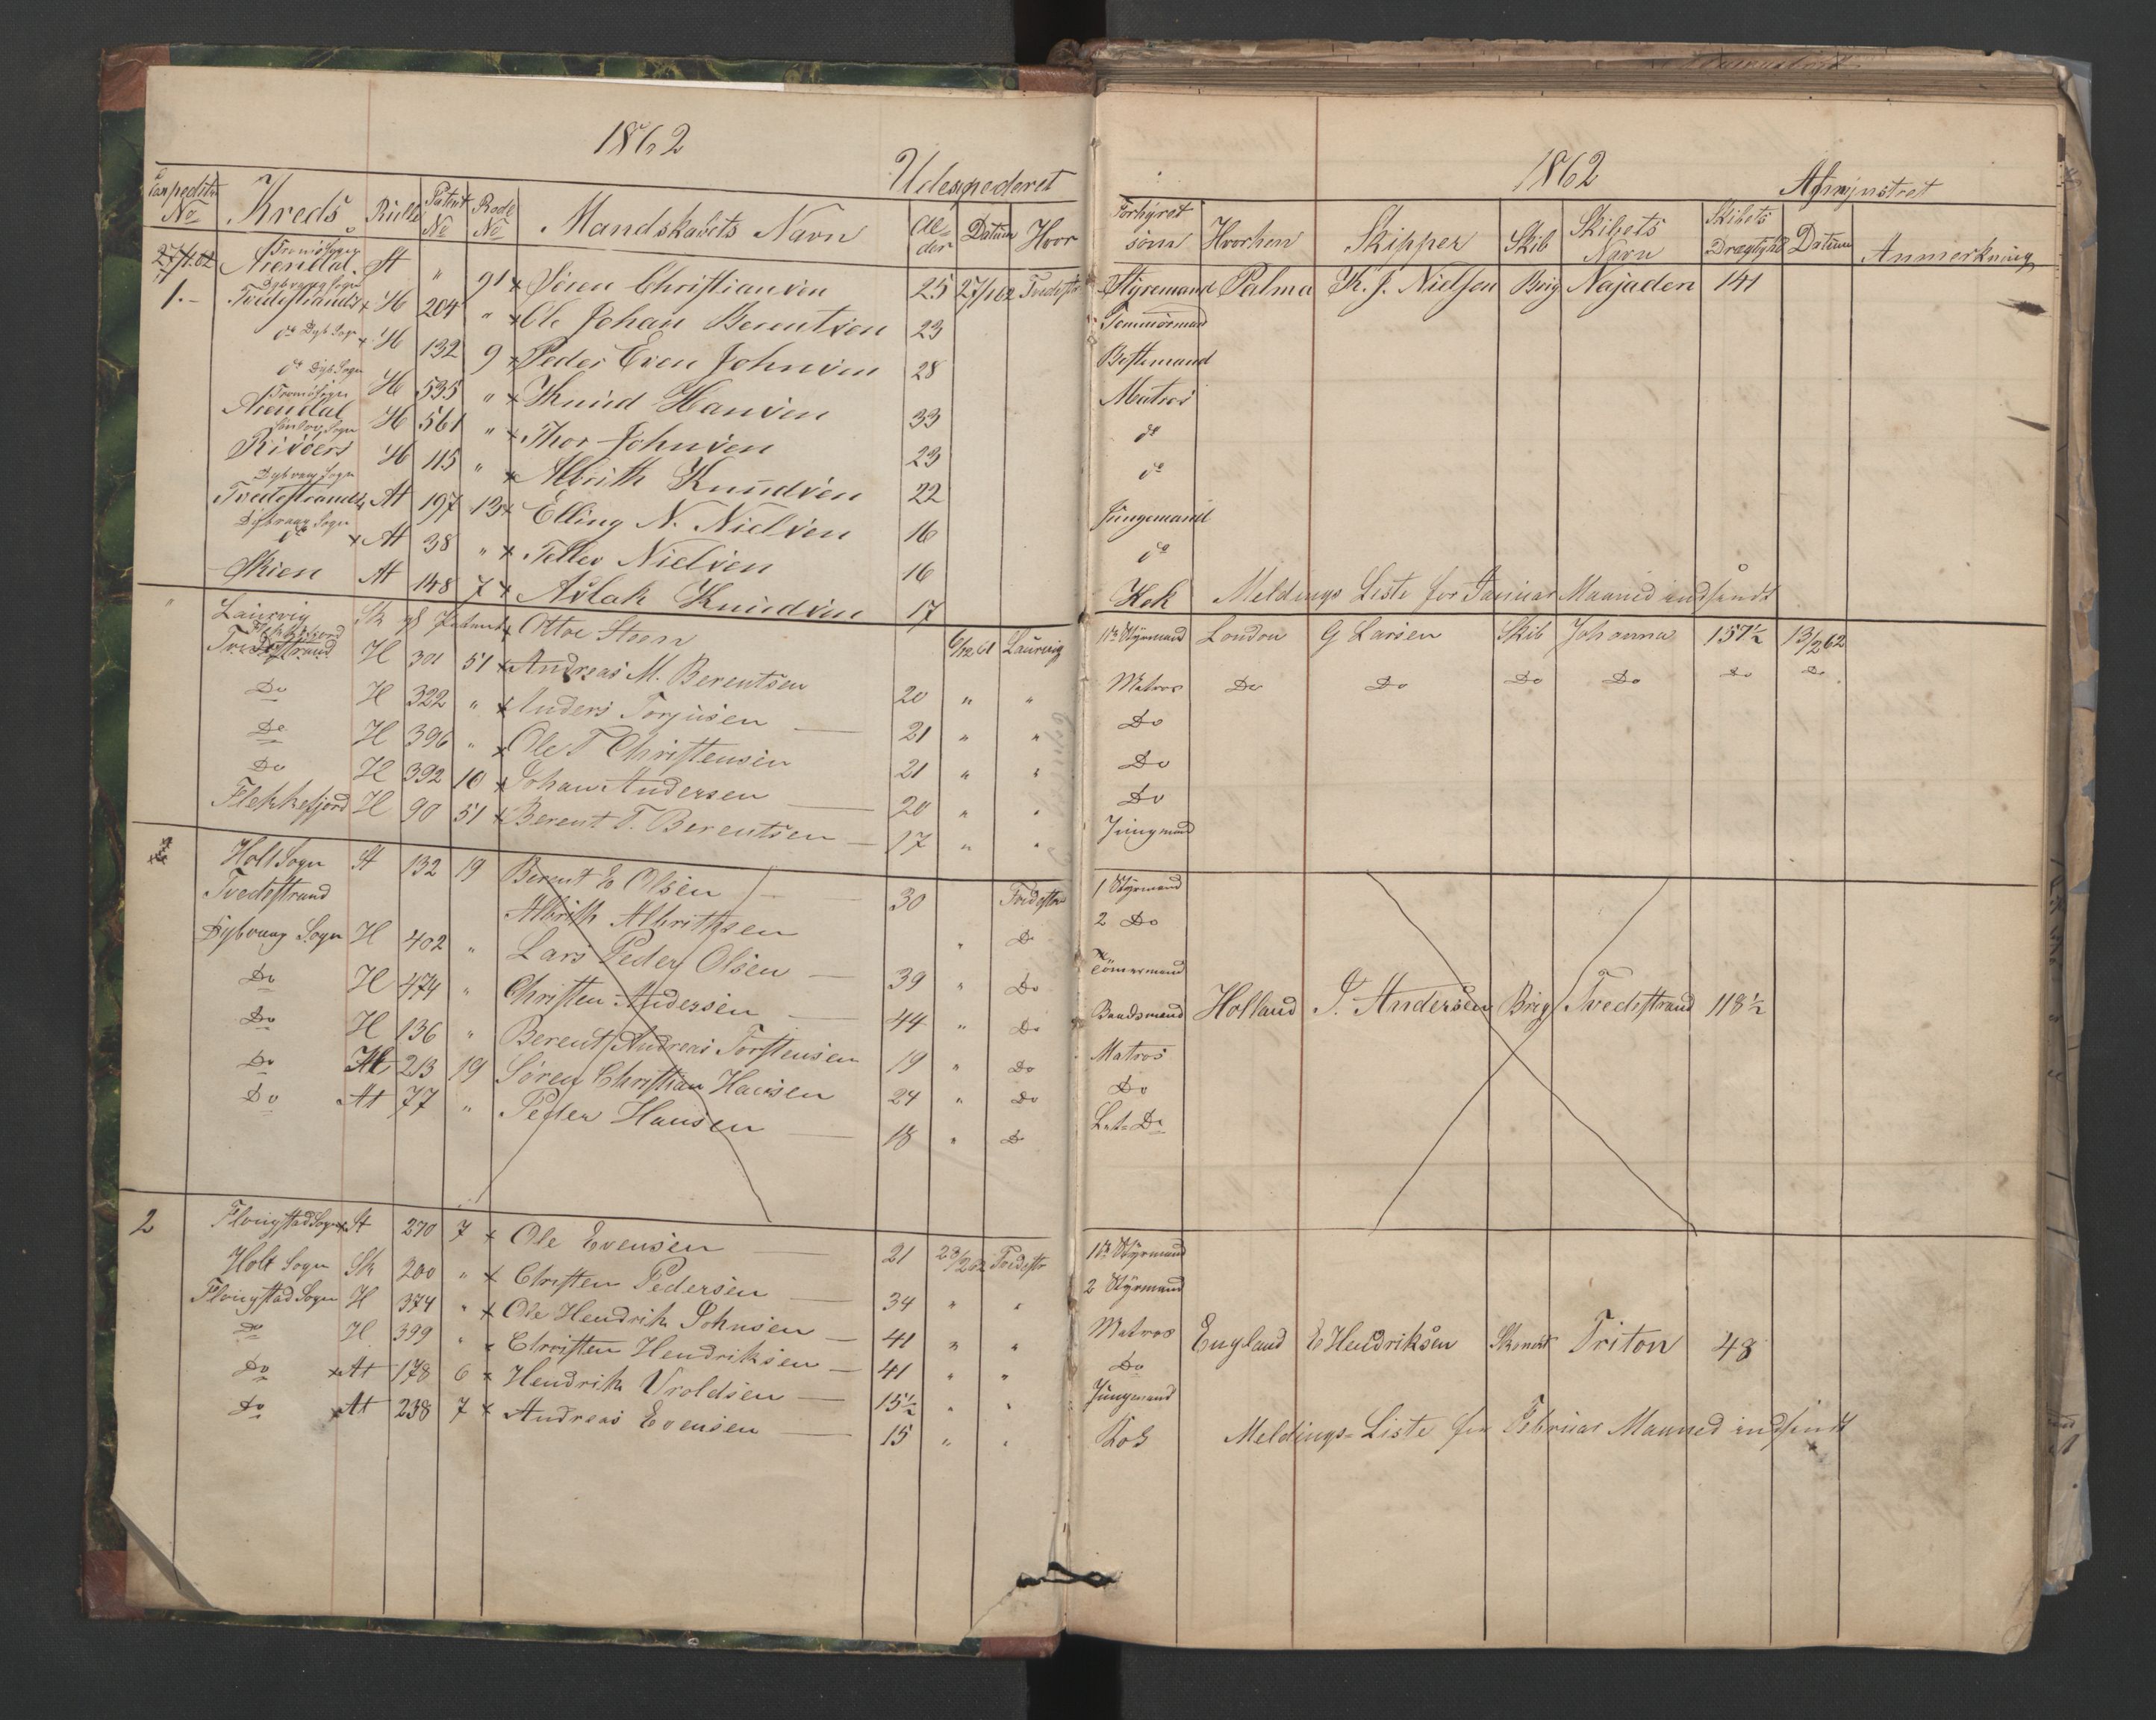 1862
Udexpederet
Expeditions No Kreds Rulle Patent No Rode No Mandskabets Navn Alder Datum Hvor
27/1.62 Tromö Sogn Arendal St " 91 x Sören Christiansen 25 27/1 62 Tvedestr
1.- Dybvaag Sogn Tvedestrand x H 204 " x Ole Johan Berentsen 23
do Dyb Sogn x H 132 9 x Peder Even Johnsen 28
do Dyb Sogn H 535 " x Knud Hansen 33
Tromö Sogn Arendal H 561 " x Thor Johnsen 23
Risöer H 115 " x Albrith Knudsen 22
Dybvaag Sogn Tvedestrand x At 197 13 x Elling N. Nielsen 16
Dybvaag Sogn do x At 38 " x Tellev Nielsen 16
Skien At 148 7 x Aslak Knudsen 17
" Laurvig Sk Patent x Ottoe Steen 6/12 61 Laurvig
Flekkefjord Tvedestrand H 301 51 x Andreas M. Berentsen 20 " "
Do H 322 " x Anders Torjusen 21 " "
Do H 396 " x Ole T Christensen 21 " "
Do H 392 10 x Johan Andersen 20 " "
Flekkefjord H 90 51 x Berent T. Berentsen 17 " "
Holt Sogn St 132 19 Berent E Olsen 30 Tvedestr
Tvedestrand Albrith Albrithsen " Do
Dybvaag Sogn H 402 " Lars Peder Olsen 39 " Do
Do H 474 " Christen Andersen 44 " Do
Do H 136 " Berent Andreas Torstensen 19 " Do
Do H 213 19 Sören Christian Hansen 24 " Do
Do At 77 " Peder Hansen 18 " Do
2 Flougstad Sogn x St 270 7 x Ole Evensen 21 23/2 62 Tvedestr
Holt Sogn Sk 200 " x Christen Pedersen 34 " "
Flougstad Sogn H 374 " x Ole Hendrik Johnsen 41 " "
Do H 399 " x Christen Hendriksen 41 " "
Do x At 178 6 x Hendrik Vroldsen 15½ " "
Do x At 238 7 x Andreas Evensen 15 " "
1862
Afmynstret
Forhyret som Hvorhen Skipper Skib Skibets Navn Skibets Drægtighed Datum Anmerkning
Styremand Palma K. J. Nielsen Brig Najaden 141
Tømmermand
Bestemand
Matros
do
do
Jungemand
do
Kok Meldings Liste for Januar Maaned indsendt
1ste Styrmand London G Larsen Skib Johanna 157½ 13/2 62
Matros Do Do Do Do Do Do
Do
Do
Do
Jungmand
1 Styrmand
2 Do
Tömmermand
Baadsmand Holland J. Andersen Brig Tvedestrand 118½
Matros
Do
Let-Do
1ste Styrmand
2 Styrmand
Matros England E Hendriksen Triton 48
Do
Jungmand
Kok Meldings-Liste for Februar Maaned indsendt